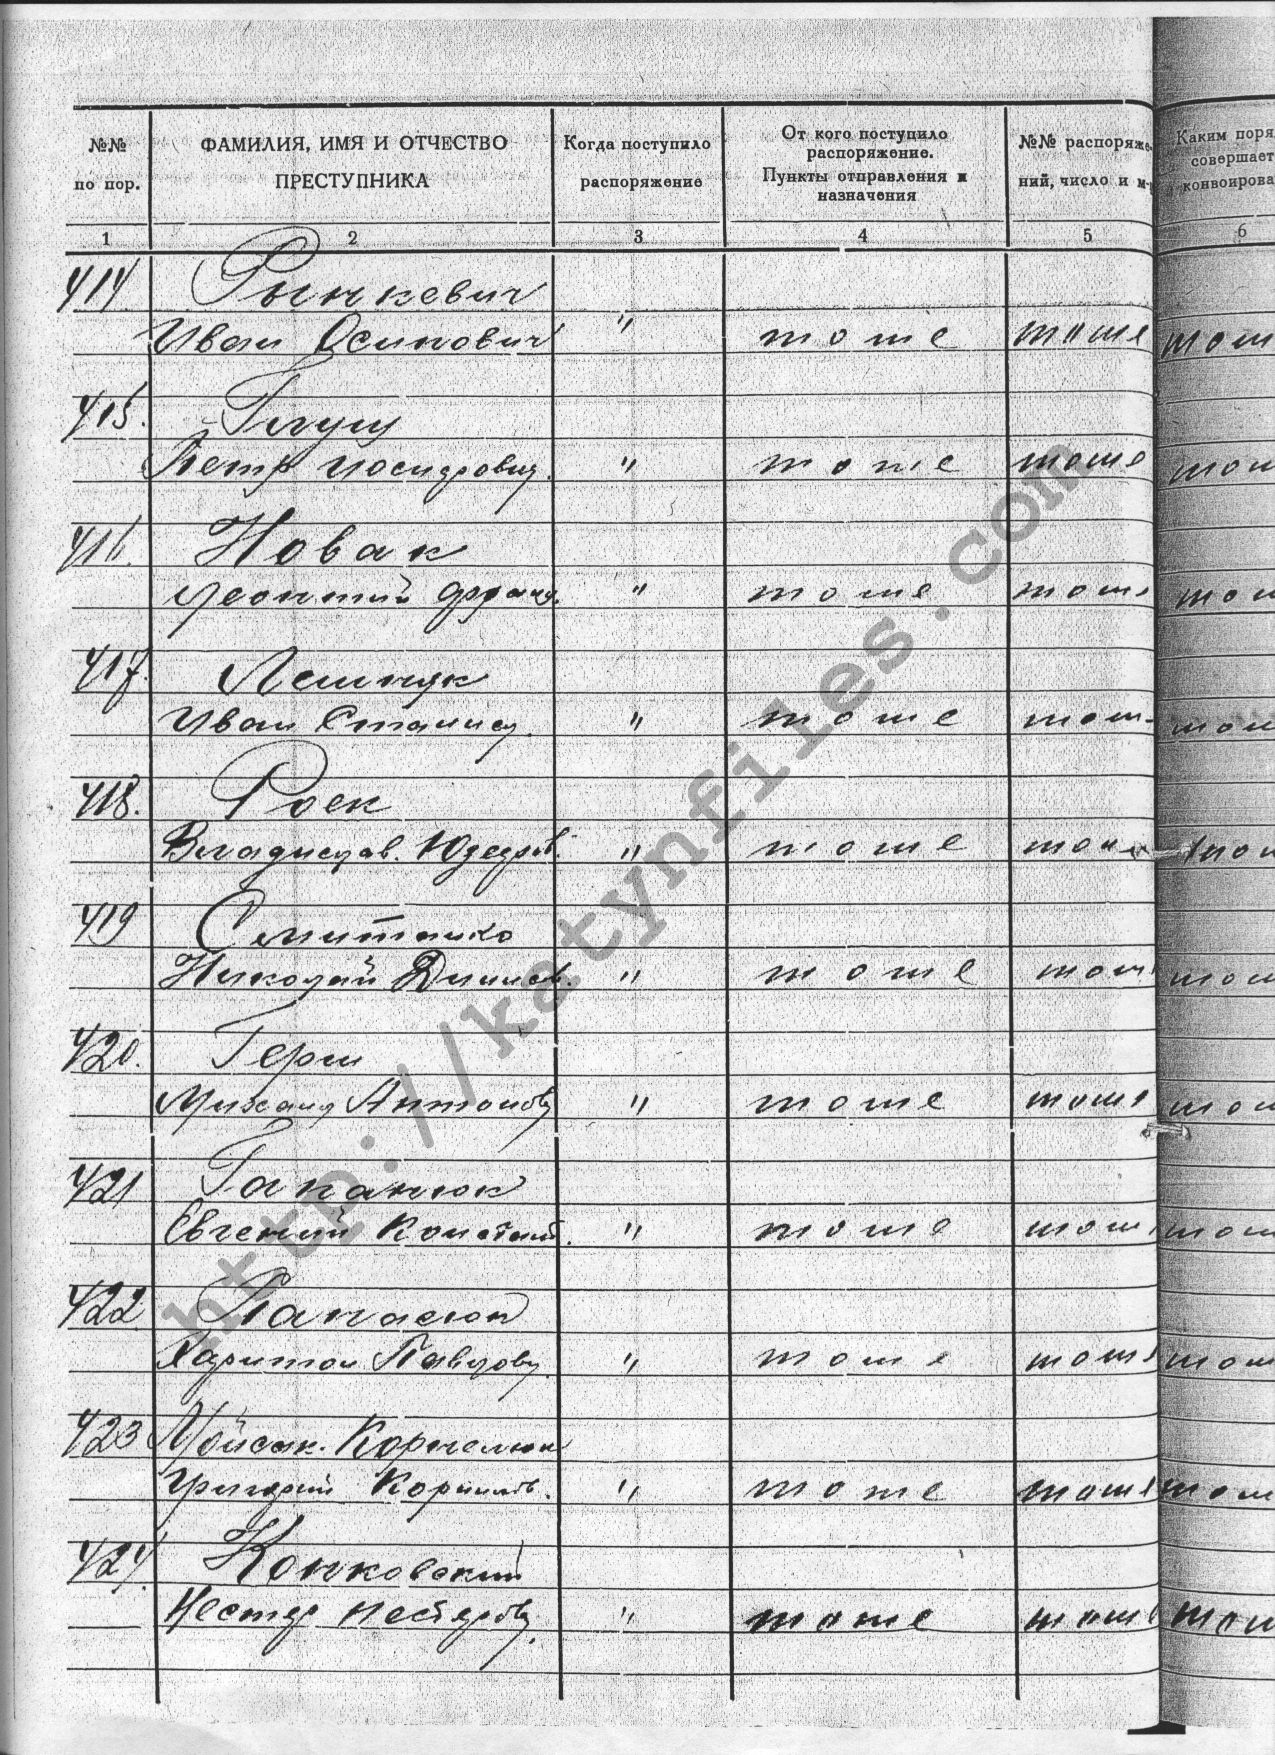 №№ по пор.
ФАМИЛИЯ, ИМЯ И ОТЧЕСТВО ПРЕСТУПНИКА
Когда поступило распоряжение
От кого поступило распоряжение. Пункты отправления и назначения
№№ распоряже-ний, число и м-
Каким поря совершает конвоирова
1 2 3 4 5 6
414 Рынкевич
Иван Осипович " тоже тоже тож
415. Глущ
Петр Иосифович. " тоже тоже тож
416. Новак
Леонтий Франц. " тоже тоже тож
417. Лешчук
Иван Станисл. " тоже тож- тож
418. Роек
Владислав. Юзефов. " тоже тож тож
419 Смитанко
Николай Данилов. " тоже тож тож
420. Герш
Михаил Антонов " тоже тоже тож
421 Гапанюк
Евгений Констант. " тоже тож тож
422 Панасюк
Харитон Павлов. " тоже тоже тож
423 Мойсак. Корнелюк
Григорий Корнилов. " тоже тоже тож
424. Конковский
Нестер Нестеров. " тоже тоже тож
http://katynfiles.com